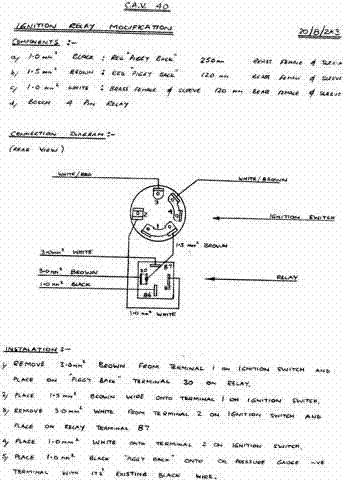 C.A.V. 40
IGNITION RELAY MODIFICATION
20/8/2A3
COMPONENTS :-
a) 1.0 mm² BLACK : RED "PIGGY BACK" 250mm BRASS FEMALE & SLEEVE
b) 1.5 mm² BROWN : RED "PIGGY BACK" 120mm BRASS FEMALE & SLEEVE
c) 1.0 mm² WHITE : BRASS FEMALE & SLEEVE 120 mm BRASS FEMALE & SLEEVE
d) BOSCH 4 PIN RELAY
CONNECTION DIAGRAM :-
(REAR VIEW)
WHITE/RED
WHITE/BROWN
3
4
2
1
IGNITION SWITCH
1.5 mm² BROWN
3.0mm² WHITE
87
3.0 mm² BROWN
30
RELAY
1.0 mm² BLACK
86
1.0 mm² WHITE
INSTALATION :-
1) REMOVE 3.0mm² BROWN FROM TERMINAL 1 ON IGNITION SWITCH AND
PLACE ON "PIGGY BACK" TERMINAL 30 ON RELAY.
2) PLACE 1.5mm² BROWN WIRE ONTO TERMINAL 1 ON IGNITION SWITCH.
3) REMOVE 3.0mm² WHITE FROM TERMINAL 2 ON IGNITION SWITCH AND
PLACE ON RELAY TERMINAL 87
4) PLACE 1.0mm² WHITE ONTO TERMINAL 2 ON IGNITION SWITCH.
5) PLACE 1.0mm² BLACK "PIGGY BACK" ONTO OIL PRESSURE GAUGE -VE
TERMINAL WITH ITS' EXISTING BLACK WIRE.